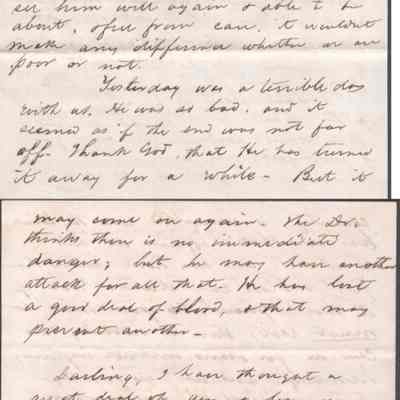 see him well again & able to be
about, & free from care, it wouldn't
make any difference whether we are
poor or not.
Yesterday was a terrible day
with us. He was so bad, and it
seemed as if the end was not far
off. Thank God, that He has turned
it away for a while - But it
may come on again. The Dr.
thinks there is no immediate
danger; but he may have another
attack for all that. He has lost
a good deal of blood, & that may
prevent another -
Darling, I have thought a
great deal of you